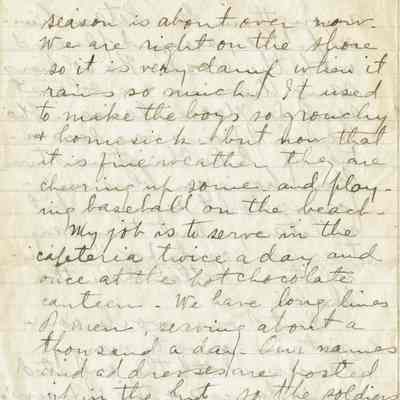 season is about over now.
We are right on the shore
so it is very damp when it
rains so much. It used
to make the boys so grouchy
& homesick but now that
it is fine weather they are
cheering up some and play-
ing baseball on the beach.
My job is to serve in the
cafeteria twice a day and
once at the hot chocolate
canteen. We have long lines
of men, serving about a
thousand a day. Our names
and addresses are posted
in the hut so the soldiers